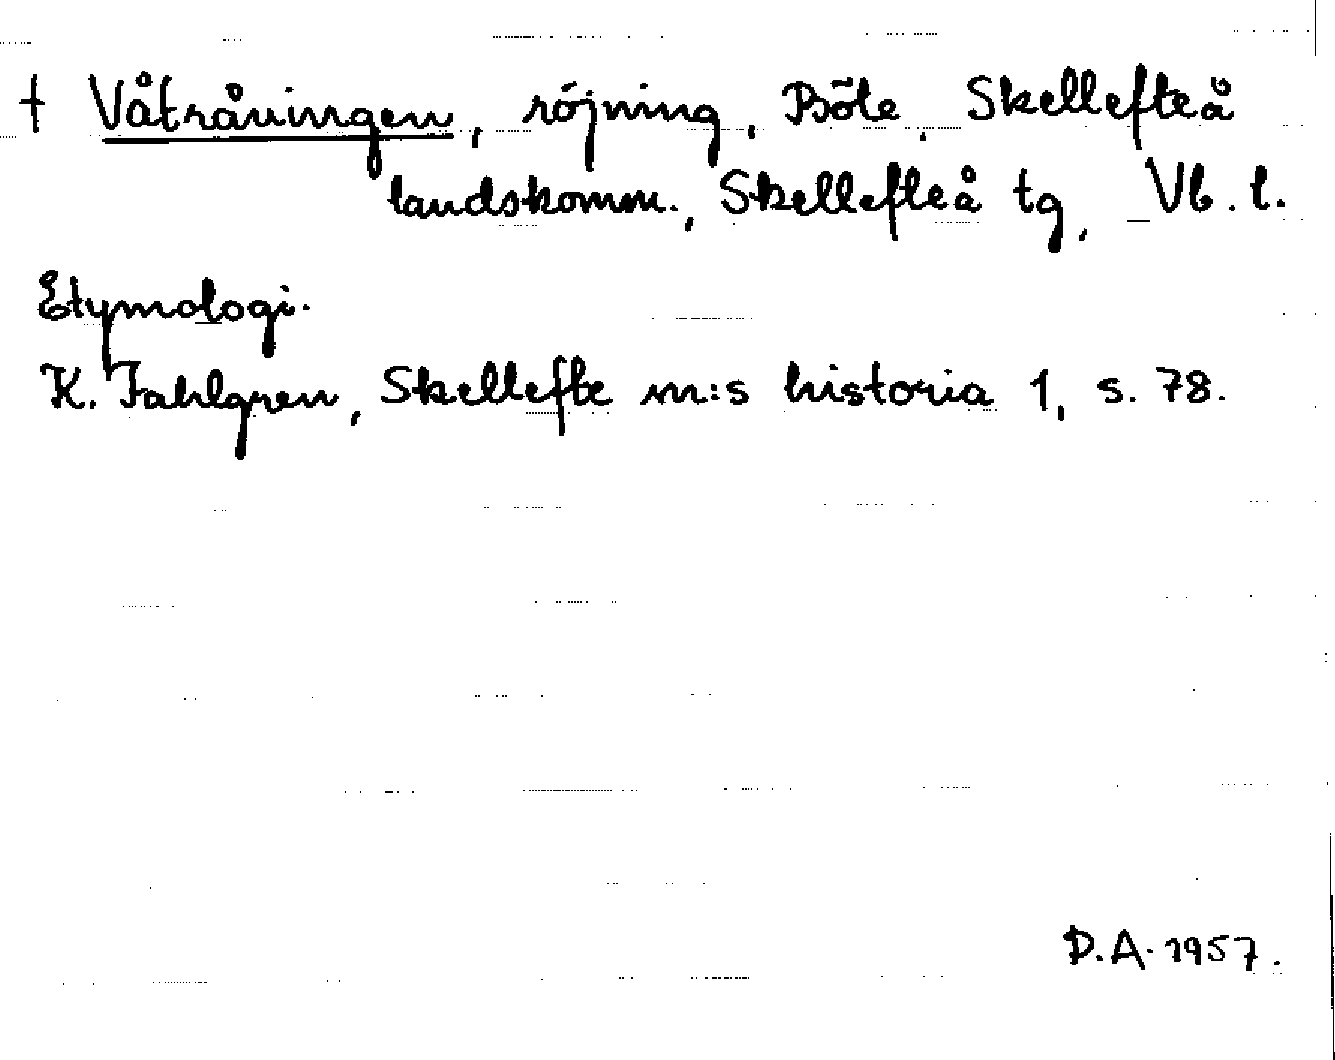 † Våtråningen, röjning, Böle, Skellefteå
landskomm., Skellefteå tg, Vb. l.
Etymologi.
K. Fahlgren, Skellefte sn:s historia 1, s. 78.
D.A. 1957.